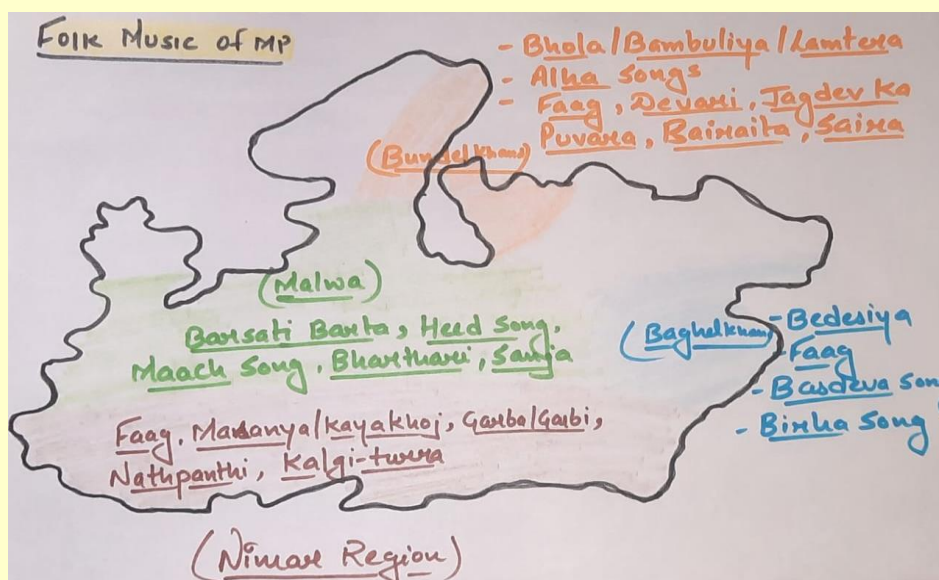 Folk Music of MP
- Bhola/Bambuliya/Lamtera
- Alha songs
- Faag, Devari, Jagdev ka
Puvara, Bairaita, Saira
(Bundelkhand)
(Malwa)
Barsati Barta, Heed Song,
Maach Song, Bharthari, Sanja
(Baghelkhand)
- Bedesiya
- Faag
- Basdeva Son
- Birha Song
Faag, Masanya/kayakhoj, Garba/Garbi,
Nathpanthi, Kalgi-turra
(Nimar Region)